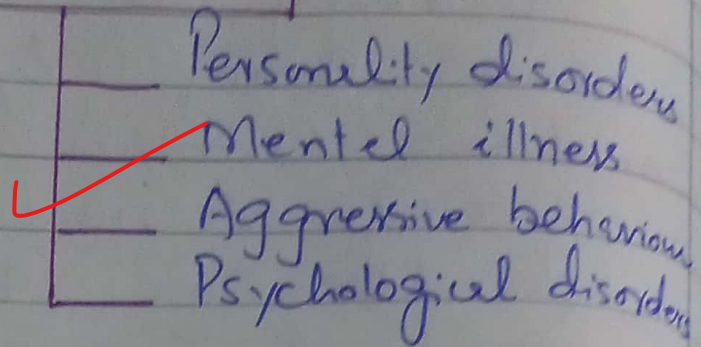 Personality disorders
Mentel illness
Aggressive behaviour
Psychological disorders